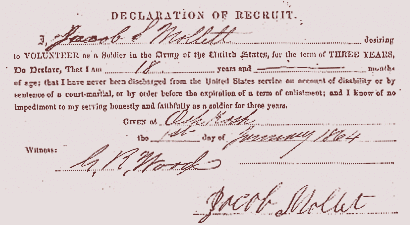 DECLARATION OF RECRUIT.
I, Jacob Mollett desiring
to VOLUNTEER as a Soldier in the Army of the United States, for the term of THREE YEARS,
Do Declare, That I am 18 years and months
of age; that I have never been discharged from the United States service on account of disability or by
sentence of a court-martial, or by order before the expiration of a term of enlistment; and I know of no
impediment to my serving honestly and faithfully as a soldier for three years.
GIVEN at
the 1st day of January 1864
Witness:
R Wood
Jacob Mollet